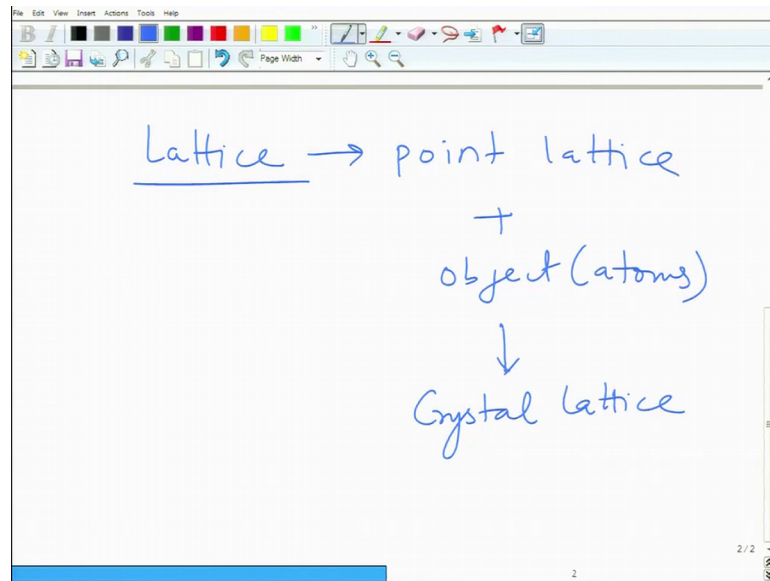 File Edit View Insert Actions Tools Help
B I
Page Width
Lattice → point lattice
+
object (atoms)
↓
Crystal Lattice
2/2
2